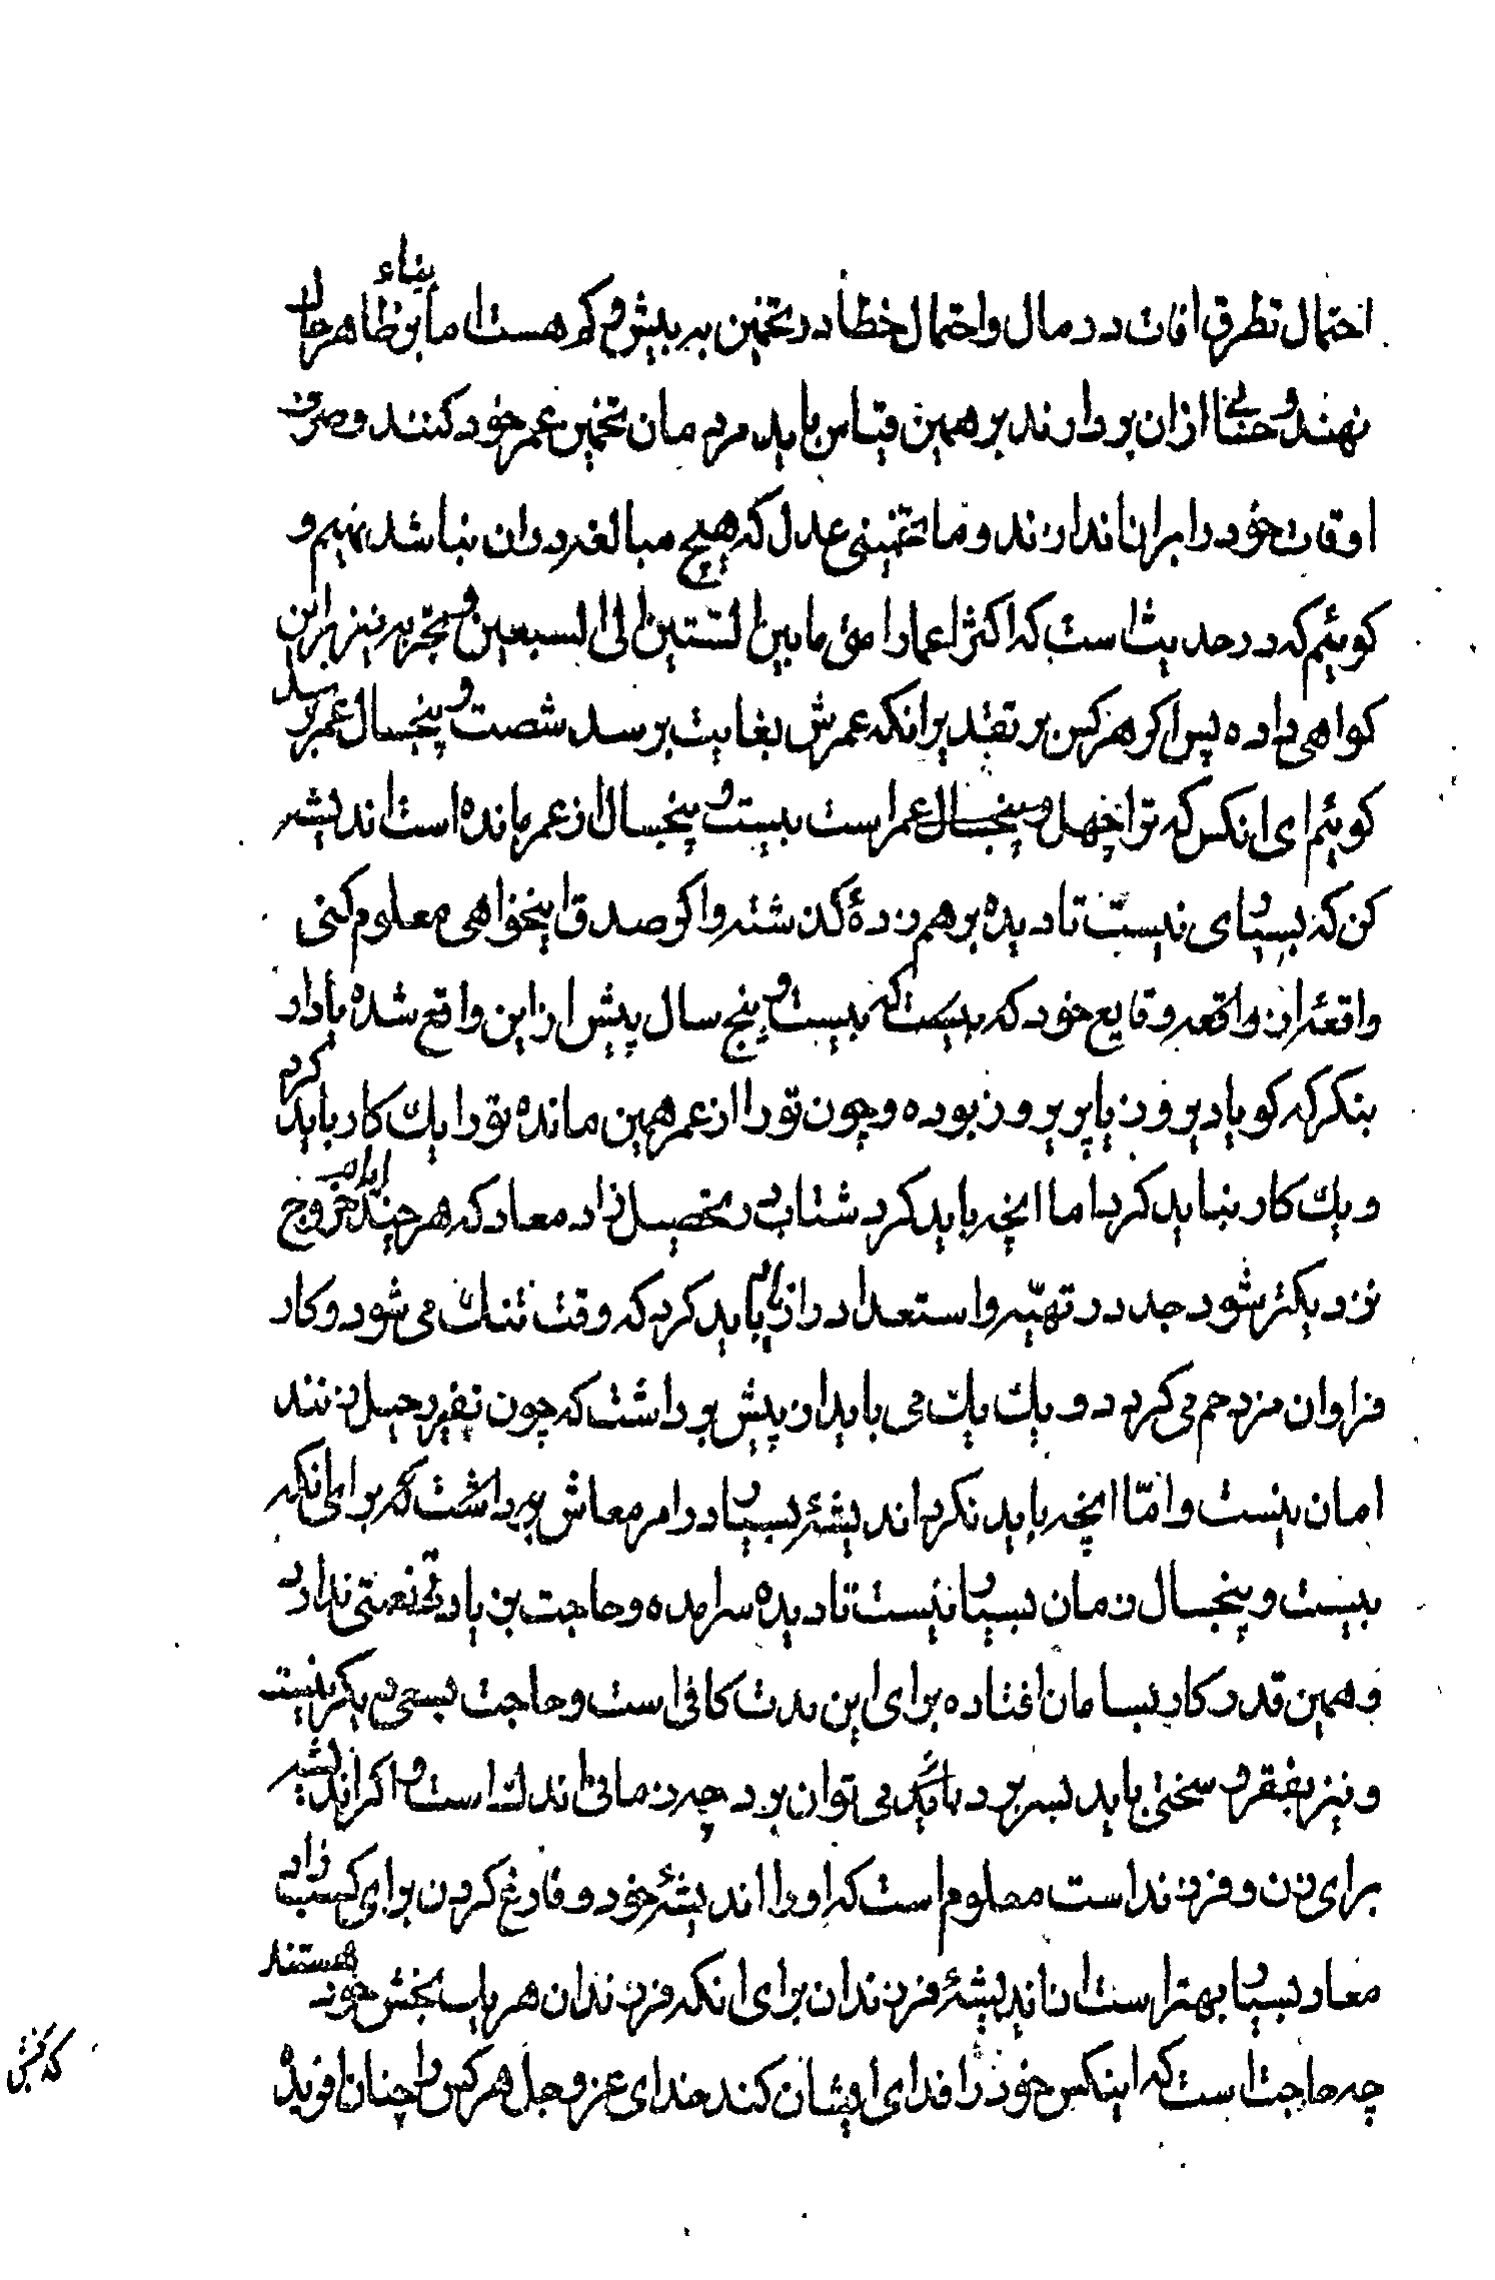 احتمال تطرق افات در مال و احتمال خطا در تخمین به بیش و کم هست اما بناء بر ظاهر حال
نهند و حسابی ازان بردارند بر همین قیاس باید مردمان تخمین عمر خود کنند و صرف
اوقات خود را بران اندازند و ما تخمینی عدل که هیچ مبالغه دران نباشد بنهیم و
کوییم که در حدیث است که اکثر اعمار امتی ما بین الستین الی السبعین و تجربه نیز براین
کواهی داده پس اکر هرکس بر تقدیر انکه عمرش بغایت برسد شصت و پنجسال عمر برسد
کوییم ای انکس که ترا چهل و پنجسال عمراست بیست و پنجسال از عمر مانده است اندیشه
کن که بسیاری نیست تا دیده برهم زدهٔ کذشته و اکر صدق این خواهی معلوم کنی
واقعهٔ از واقعه وقایع خود که بیست که بیست و پنج سال پیش ازاین واقع شده یاد ار
بنکر که کویا دیروز یا پریروز بوده و چون تو را از عمر همین مانده تو را یك کار باید کرد
و یك کار نباید کرد اما انچه باید کرد شتاب در تحصیل زاد معاد که هر چند ایام خروج
نزدیکتر شود جد در تهیّه و استعداد زاد باید کرد که وقت تنك می شود و کار
فراوان مزدحم می کردد و یك یك می باید از پیش برداشت که چون نفیر رحیل زنند
امان نیست و امّا انچه باید نکرد اندیشهٔ بسیار در امر معاش برداشت که برای انکه
بیست و پنجسال زمان بسیار نیست تا دیده سرامده و حاجت بزیادتی نعمتی ندارد
و همین قدر کار بسامان افتاده برای این مدت کافی است و حاجت بسعی دیکر نیست
و نیز بفقر و سختی باید بسر برد می توان برد چه زمانی اندك است و اکر اندیشه
برای زن و فرزند است معلوم است که او را اندیشهٔ خود و فارغ کردن برای کسب زاد
معاد بسیار بهتر است از اندیشهٔ فرزندان برای انکه فرزندان هریك بخش خود هستند
چه حاجت است که اینکس خود را فدای ایشان کند خدای عز و جل هرکس را چنان افریده